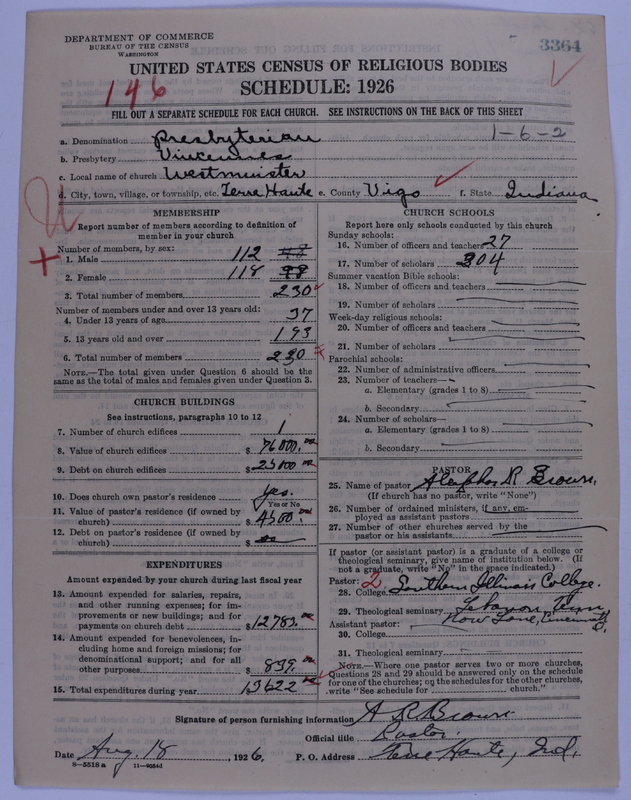 DEPARTMENT OF COMMERCE
BUREAU OF THE CENSUS
WASHINGTON
3364
UNITED STATES CENSUS OF RELIGIOUS BODIES
SCHEDULE: 1926
146
FILL OUT A SEPARATE SCHEDULE FOR EACH CHURCH. SEE INSTRUCTIONS ON THE BACK OF THIS SHEET
a. Denomination Presbyterian 1-6-2
b. Presbytery Vincennes
c. Local name of church Westminister
d. City, town, village, or township, etc. Terre Haute e. County Vigo f. State Indiana
MEMBERSHIP
Report number of members according to definition of
member in your church
Number of members, by sex:
1. Male 112
2. Female 118
3. Total number of members 230
Number of members under and over 13 years old:
4. Under 13 years of age 37
5. 13 years old and over 193
6. Total number of members 230
NOTE.—The total given under Question 6 should be
the same as the total of males and females given under Question 3.
CHURCH BUILDINGS
See instructions, paragraphs 10 to 12
7. Number of church edifices 1
8. Value of church edifices $ 76000.00
9. Debt on church edifices $ 25000.00
10. Does church own pastor's residence yes.
Yes or No
11. Value of pastor's residence (if owned by
church) $ 4500.00
12. Debt on pastor's residence (if owned by
church) $
EXPENDITURES
Amount expended by your church during last fiscal year
13. Amount expended for salaries, repairs,
and other running expenses; for im-
provements or new buildings; and for
payments on church debt $ 12783.00
14. Amount expended for benevolences, in-
cluding home and foreign missions; for
denominational support; and for all
other purposes $ 839.00
15. Total expenditures during year 13622.00
CHURCH SCHOOLS
Report here only schools conducted by this church
Sunday schools:
16. Number of officers and teachers 27
17. Number of scholars 304
Summer vacation Bible schools:
18. Number of officers and teachers
19. Number of scholars
Week-day religious schools:
20. Number of officers and teachers
21. Number of scholars
Parochial schools:
22. Number of administrative officers
23. Number of teachers—
a. Elementary (grades 1 to 8)
b. Secondary
24. Number of scholars—
a. Elementary (grades 1 to 8)
b. Secondary
PASTOR
25. Name of pastor R Brown.
(If church has no pastor, write "None")
26. Number of ordained ministers, if any, em-
ployed as assistant pastors
27. Number of other churches served by the
pastor or his assistants
If pastor (or assistant pastor) is a graduate of a college or
theological seminary, give name of institution below. (If
not a graduate, write "No" in the space indicated.)
Pastor: 2
28. College Southern Illinois College.
29. Theological seminary Lebanon Tenn
Assistant pastor: Now Lane, Cincinnati, O.
30. College
31. Theological seminary
NOTE.—Where one pastor serves two or more churches,
Questions 28 and 29 should be answered only on the schedule
for one of the churches; on the schedules for the other churches,
write "See schedule for church."
Signature of person furnishing information A R Brown
Official title Pastor.
Date Aug. 18, 1926. P. O. Address Terre Haute, Ind.
8—5518 a